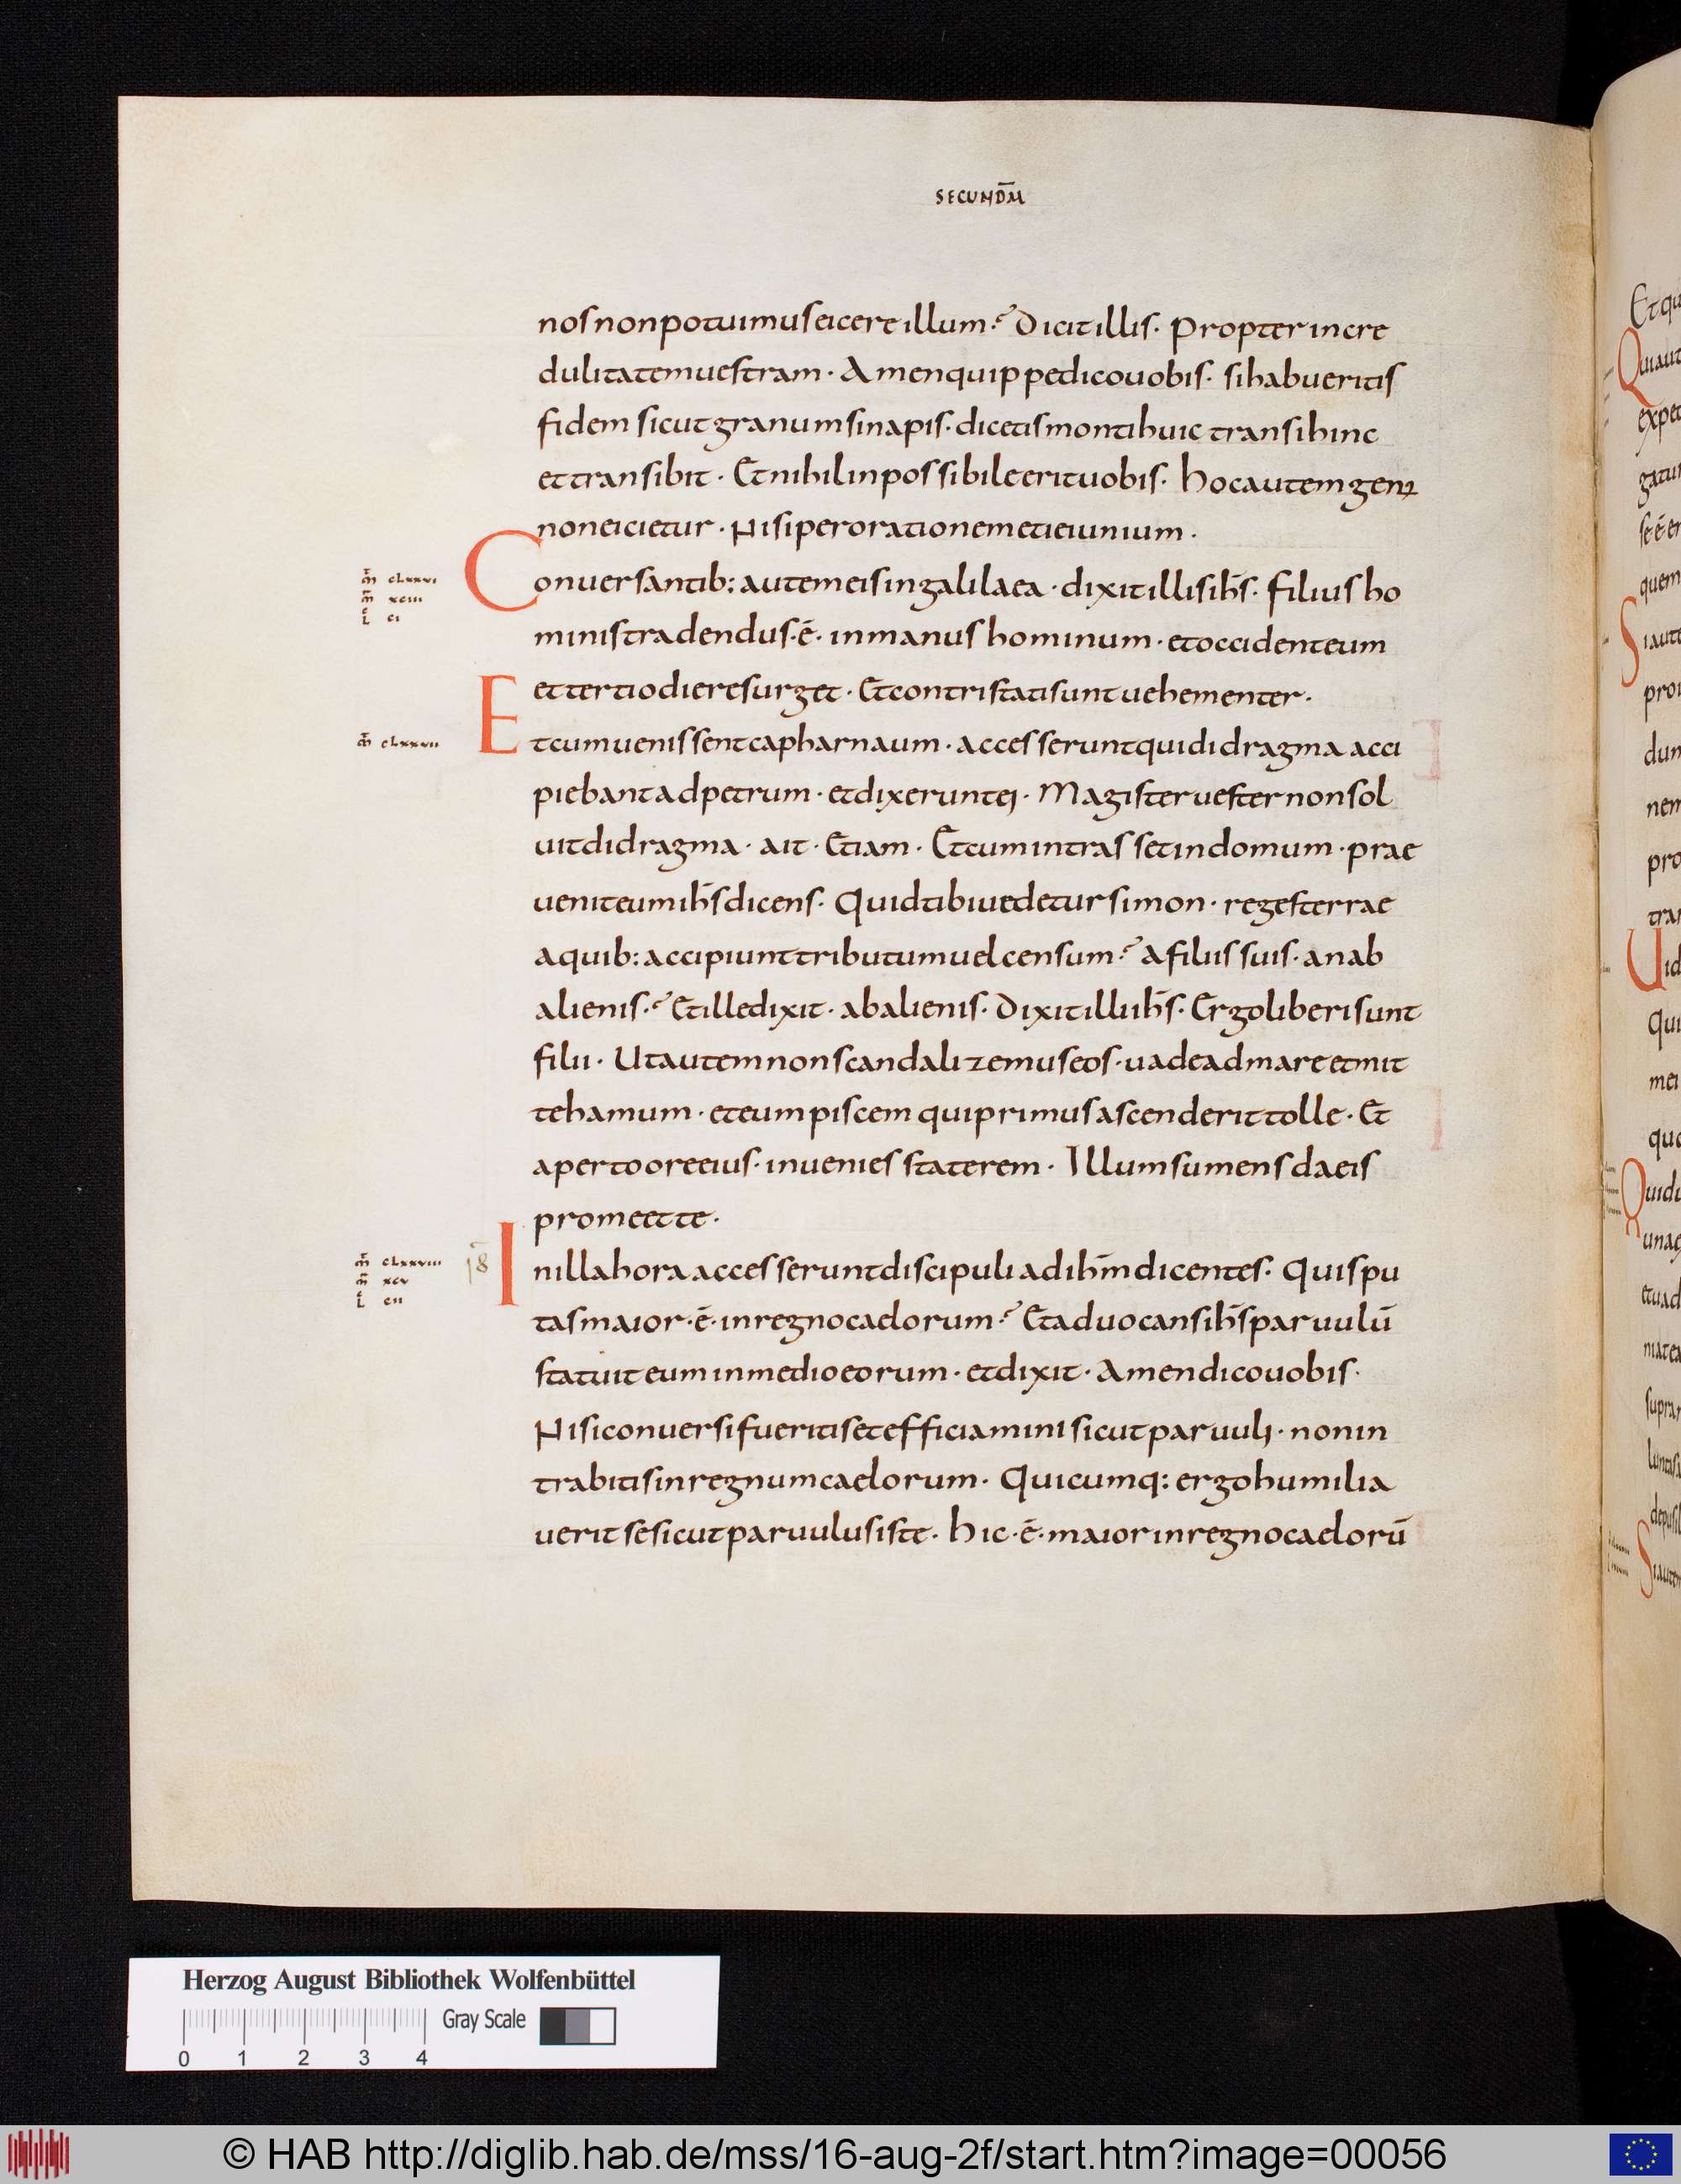 SECUNDM̄
nos non potuimus eicere illum? Dicit illis. Propter incre
dulitatem uestram. Amen quippe dico uobis. si habueritis
fidem sicut granum sinapis. dicetis monti huic transi hinc
et transibit. Et nihil inpossibile erit uobis. hoc autem gen
non eicietur. Nisi per orationem et ieiunium.
Conuersantib: autem eis in galilaea. dixit illis ih̄s. filius ho
minis tradendus .ē. in manus hominum. et occident eum
et tertio die resurget. Et contristati sunt uehementer.
Et cum uenissent capharnaum. accesserunt qui didragma acci
piebant ad petrum. et dixerunt ei. Magister uester non sol
uit didragma. ait. Etiam. Et cum intrasset in domum. prae
uenit eum ih̄s dicens. Quid tibi uedetur simon. reges terrae
a quib: accipiunt tributum uel censum? a filiis suis. an ab
alienis? Et ille dixit. ab alienis. Dixit illi ih̄s. Ergo liberi sunt
filii. Ut autem non scandalizemus eos. uade ad mare et mit
te hamum. et eum piscem qui primus ascenderit tolle. Et
aperto ore eius. inuenies staterem. Illum sumens da eis
pro me et te.
In illa hora accesserunt discipuli ad ih̄m dicentes. Quis pu
tas maior .ē. in regno caelorum? Et aduocans ih̄s paruulū
statuit eum in medio eorum. et dixit. Amen dico uobis.
Nisi conuersi fueritis et efficiamini sicut paruuli. non in
trabitis in regnum caelorum. Quicumq: ergo humilia
uerit se sicut paruulus iste. hic .ē. maior in regno caelorū
m̄ clxxvi
m̄ xciii
L ci
m̄ clxxvii
m̄ clxxviii
m̄ xcv
L cii
18
Et qu
Quiaut
expet
gatur
se ē er
quem
Siaute
pro
dun
nem
pro
tra
Uid
qui
mei
quo
Quidu
unaq
et uad
supra
Siautem
Herzog August Bibliothek Wolfenbüttel
Gray Scale
0 1 2 3 4
© HAB http://diglib.hab.de/mss/16-aug-2f/start.htm?image=00056